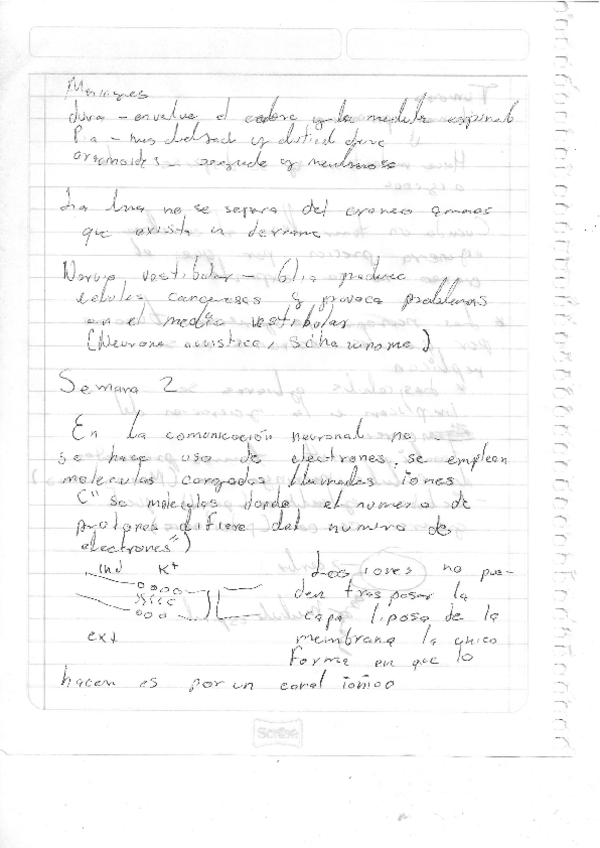 Meninges
dura - envuelve el cadera y la medula espinal
Pia - mas delgada y
aracnoides - segunda y
La dura no se separa del craneo amenos
que exista un derrame
Nervio vestibular - Glia produce
celulas cangerosas y provoca problemas
en el medio vestibular
(Neuroma acustico, schawnoma)
Semana 2
En la comunicación neuronal no
se hace uso de electrones, se emplean
moleculas cargadas llamadas iones
(" se moleculas donde el numero de
protones difiere del numero de
electrones")
int K+
Los iones no pue-
den traspasar la
capa liposa de la
ext
membrana la unica
forma en que lo
hacen es por un canal ionico
Scribe